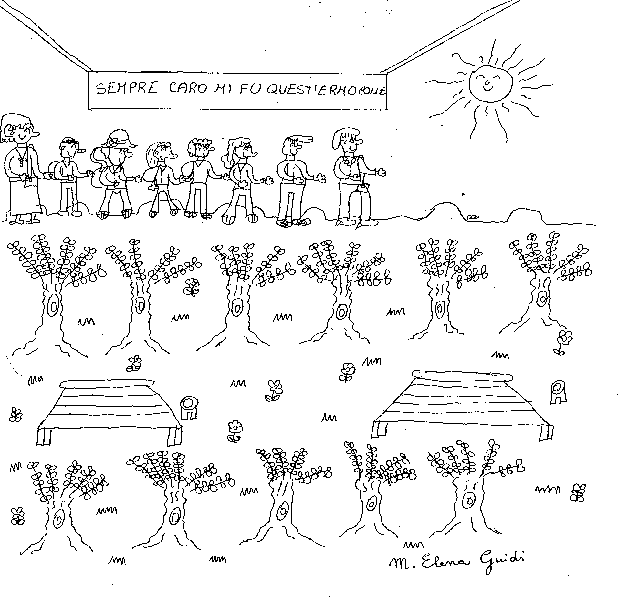 SEMPRE CARO MI FU QUEST'ERMO COLLE
M. Elena Guidi